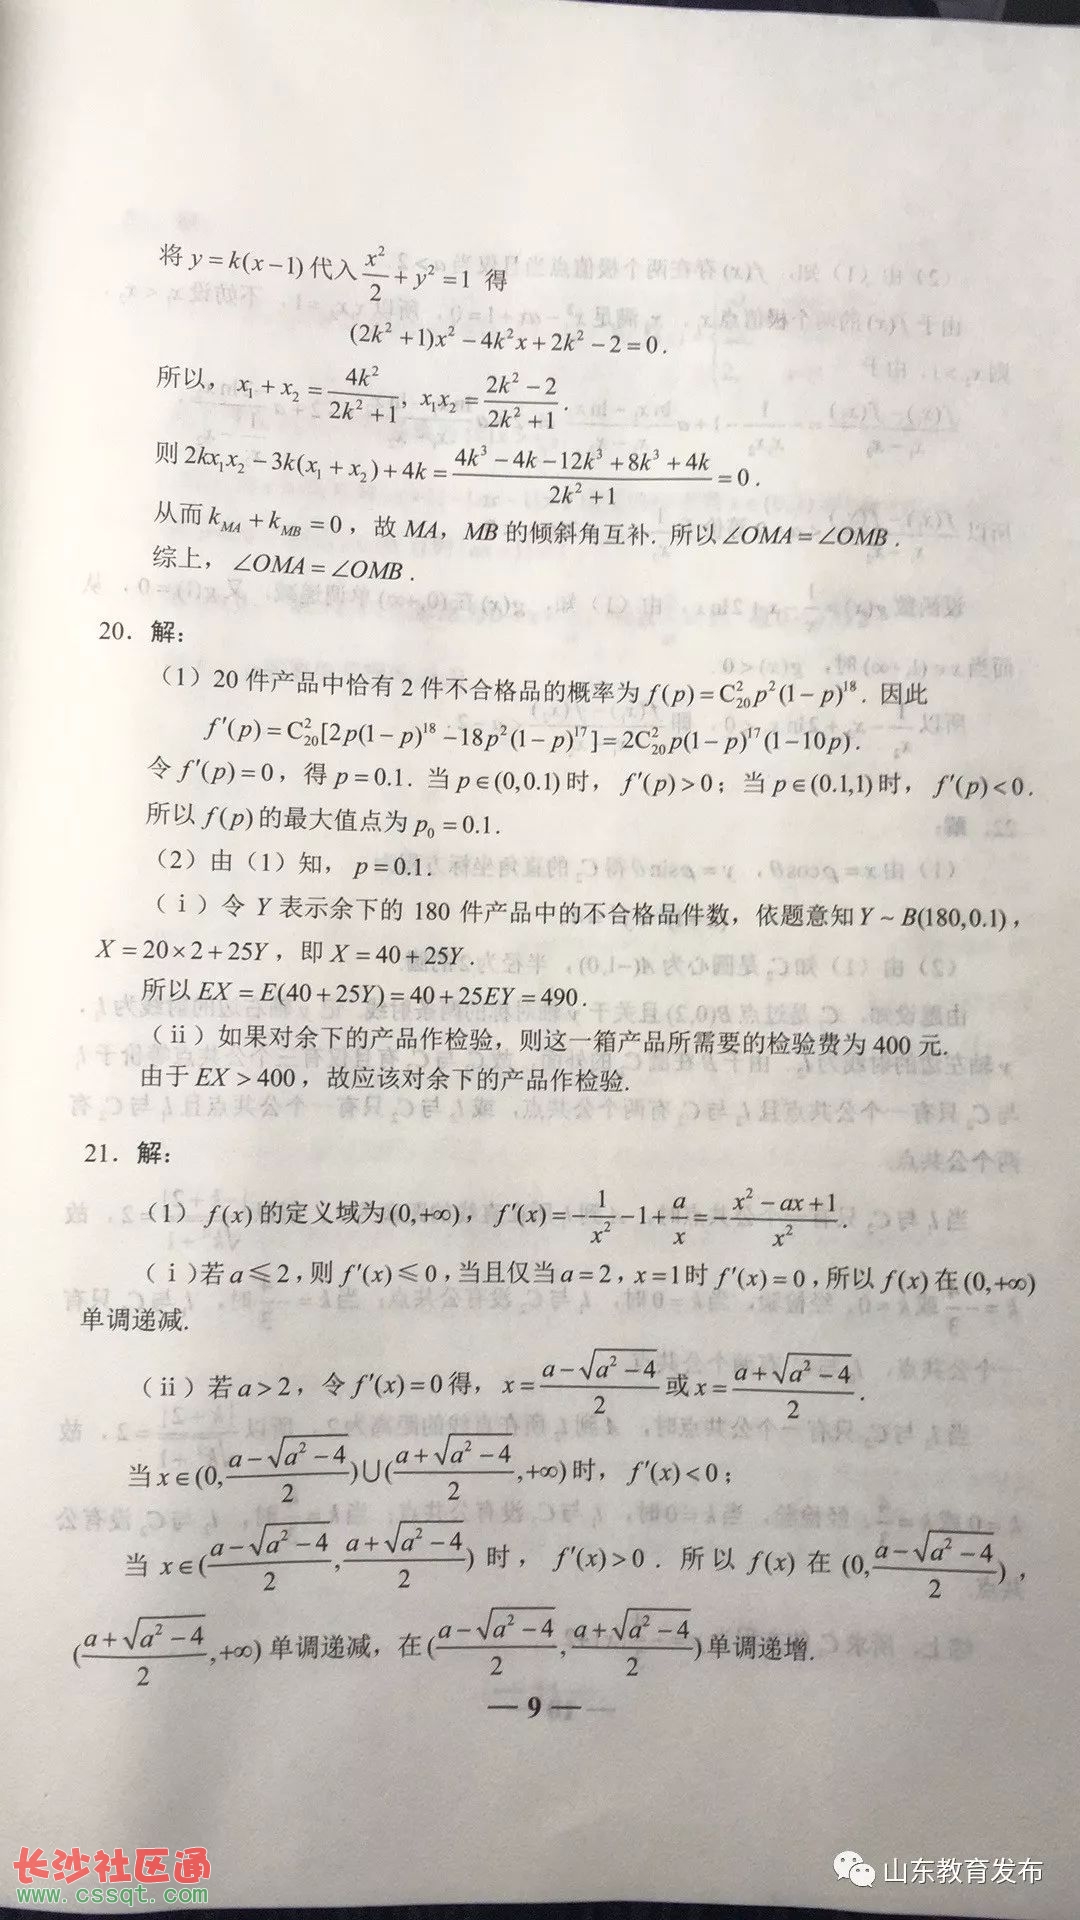 将 y=k(x−1) 代入 x²/2 + y² =1 得
(2k²+1)x²−4k²x+2k²−2=0.
所以，x₁+x₂=4k²/(2k²+1)，x₁x₂=(2k²−2)/(2k²+1).
则 2kx₁x₂−3k(x₁+x₂)+4k=(4k³−4k−12k³+8k³+4k)/(2k²+1)=0.
从而 k_MA+k_MB=0，故 MA，MB 的倾斜角互补. 所以∠OMA=∠OMB.
综上，∠OMA=∠OMB.
20．解：
（1）20 件产品中恰有 2 件不合格品的概率为 f(p)=C₂₀²p²(1−p)¹⁸. 因此
f′(p)=C₂₀²[2p(1−p)¹⁸−18p²(1−p)¹⁷]=2C₂₀²p(1−p)¹⁷(1−10p).
令 f′(p)=0，得 p=0.1. 当 p∈(0,0.1) 时，f′(p)>0；当 p∈(0.1,1) 时，f′(p)<0.
所以 f(p) 的最大值点为 p₀=0.1.
（2）由（1）知，p=0.1.
（ⅰ）令 Y 表示余下的 180 件产品中的不合格品件数，依题意知 Y~B(180,0.1)，
X=20×2+25Y，即 X=40+25Y.
所以 EX=E(40+25Y)=40+25EY=490.
（ⅱ）如果对余下的产品作检验，则这一箱产品所需要的检验费为 400 元.
由于 EX>400，故应该对余下的产品作检验.
21．解：
（1）f(x) 的定义域为(0,+∞)，f′(x)=−1/x²−1+a/x=−(x²−ax+1)/x².
（ⅰ）若 a≤2，则 f′(x)≤0，当且仅当 a=2，x=1 时 f′(x)=0，所以 f(x) 在 (0,+∞)
单调递减.
（ⅱ）若 a>2，令 f′(x)=0 得，x=(a−√(a²−4))/2 或 x=(a+√(a²−4))/2.
当 x∈(0,(a−√(a²−4))/2)∪((a+√(a²−4))/2,+∞) 时，f′(x)<0；
当 x∈((a−√(a²−4))/2,(a+√(a²−4))/2) 时，f′(x)>0. 所以 f(x) 在 (0,(a−√(a²−4))/2)，
((a+√(a²−4))/2,+∞) 单调递减，在 ((a−√(a²−4))/2,(a+√(a²−4))/2) 单调递增.
— 9 —
长沙社区通
www.cssqt.com
山东教育发布